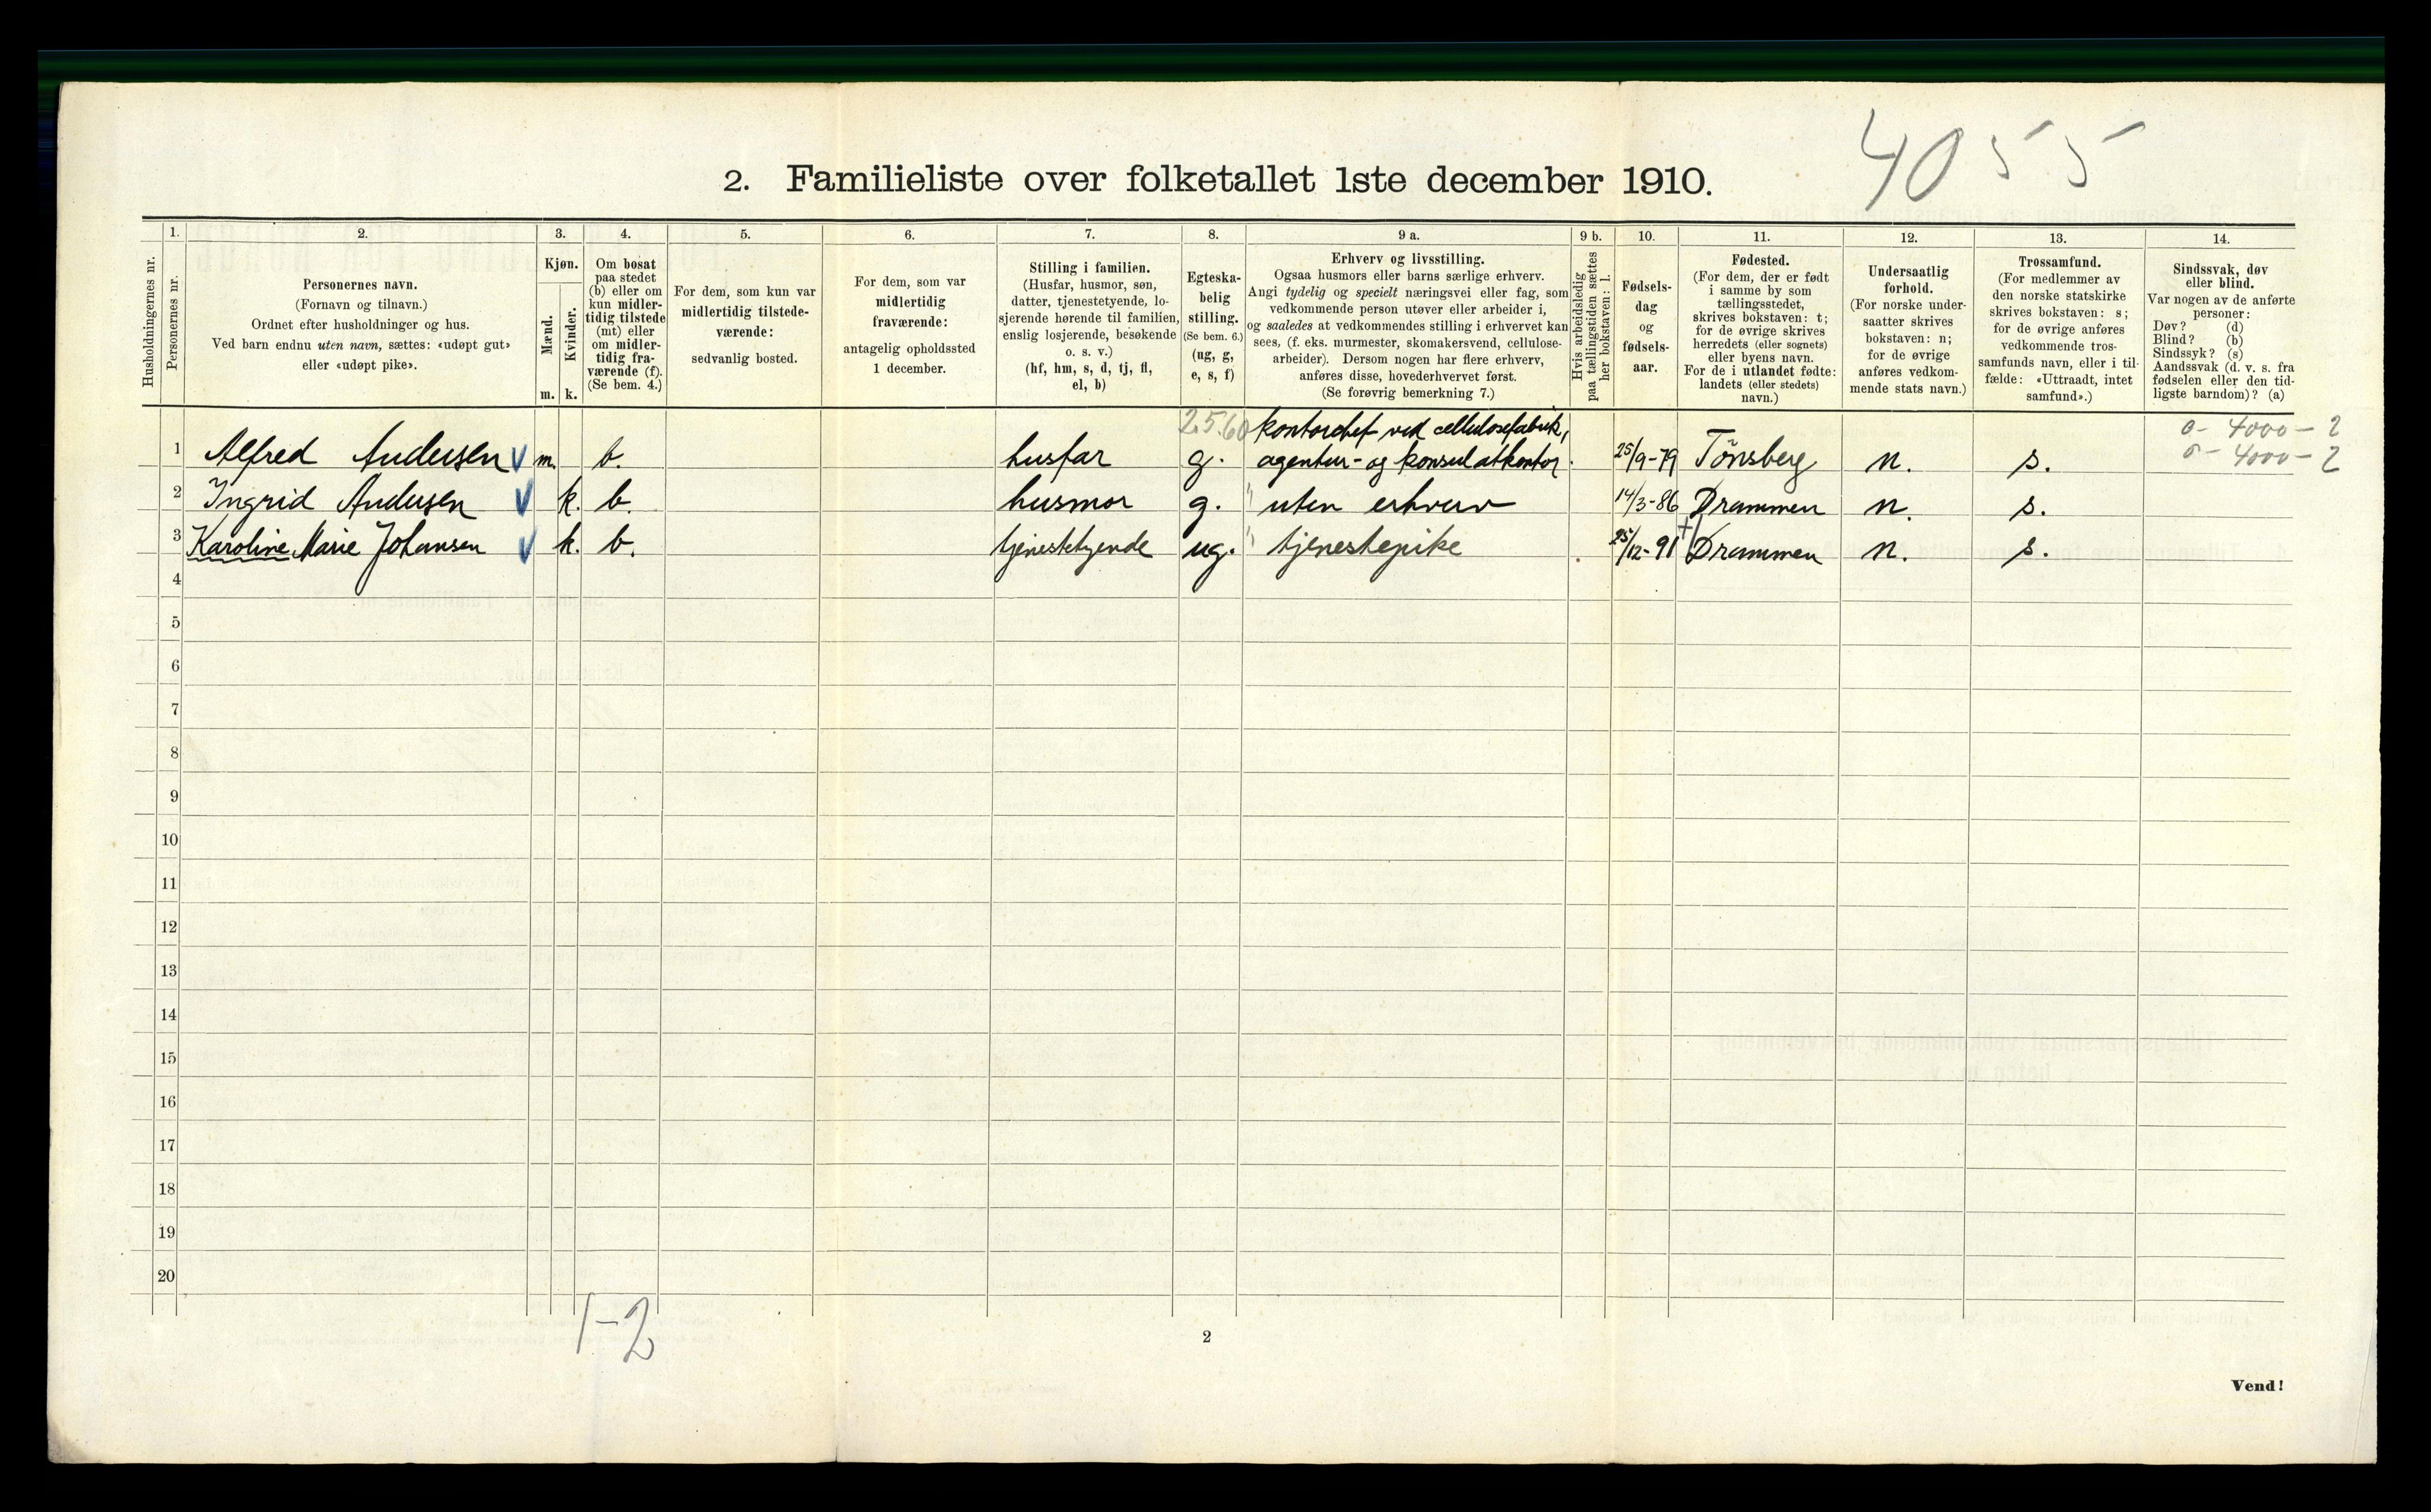 4055
2. Familieliste over folketallet 1ste december 1910.
Husholdningernes nr.
1.
Personernes nr.
2.
Personernes navn.
(Fornavn og tilnavn.)
Ordnet efter husholdninger og hus.
Ved barn endnu uten navn, sættes: «udøpt gut»
eller «udøpt pike».
3.
Kjøn.
Mænd.
Kvinder.
m. k.
4.
Om bosat
paa stedet
(b) eller om
kun midler-
tidig tilstede
(mt) eller
om midler-
tidig fra-
værende (f).
(Se bem. 4.)
5.
For dem, som kun var
midlertidig tilstede-
værende:
sedvanlig bosted.
6.
For dem, som var
midlertidig
fraværende:
antagelig opholdssted
1 december.
7.
Stilling i familien.
(Husfar, husmor, søn,
datter, tjenestetyende, lo-
sjerende hørende til familien,
enslig losjerende, besøkende
o. s. v.)
(hf, hm, s, d, tj, fl,
el, b)
8.
Egteska-
belig
stilling.
(Se bem. 6.)
(ug, g,
e, s, f)
9 a.
Erhverv og livsstilling.
Ogsaa husmors eller barns særlige erhverv.
Angi tydelig og specielt næringsvei eller fag, som
vedkommende person utøver eller arbeider i,
og saaledes at vedkommendes stilling i erhvervet kan
sees, (f. eks. murmester, skomakersvend, cellulose-
arbeider). Dersom nogen har flere erhverv,
anføres disse, hovederhvervet først.
(Se forøvrig bemerkning 7.)
9 b.
Hvis arbeidsledig
paa tællingstiden sættes
her bokstaven: l.
10.
Fødsels-
dag
og
fødsels-
aar.
11.
Fødested.
(For dem, der er født
i samme by som
tællingsstedet,
skrives bokstaven: t;
for de øvrige skrives
herredets (eller sognets)
eller byens navn.
For de i utlandet fødte:
landets (eller stedets)
navn.)
12.
Undersaatlig
forhold.
(For norske under-
saatter skrives
bokstaven: n;
for de øvrige
anføres vedkom-
mende stats navn.)
13.
Trossamfund.
(For medlemmer av
den norske statskirke
skrives bokstaven: s;
for de øvrige anføres
vedkommende tros-
samfunds navn, eller i til-
fælde: «Uttraadt, intet
samfund».)
14.
Sindssvak, døv
eller blind.
Var nogen av de anførte
personer:
Døv? (d)
Blind? (b)
Sindssyk? (s)
Aandssvak (d. v. s. fra
fødselen eller den tid-
ligste barndom)? (a)
25.60 kontorchef ved cellulosefabrik, 0- 4000 - 2
1 Alfred Andersen V m. b. husfar g. agentur- og konsulatkontor. 25/9-79 Tönsberg n. s. 0- 4000- 2
2 Ingrid Andersen V k. b. husmor g. " uten erhverv 14/3-86 Drammen n. s.
3 Karoline Marie Johansen V k. b. tjenestetyende ug. " tjenestepike 25/12-91 Drammen n. s.
4
5
6
7
8
9
10
11
12
13
14
15
16
17
18
19
20
1-2
2
Vend!